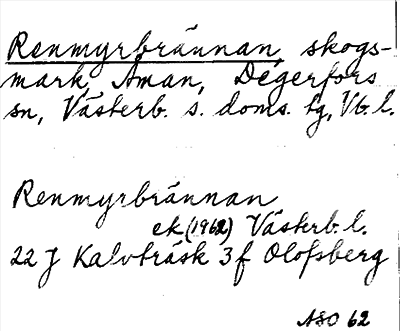 Renmyrbrännan, skogs-
mark, Åman, Degerfors
sn, Västerb. s. doms. tg, Vb. l.
Renmyrbrännan
ek (1962) Västerb. l.
22 J Kalvträsk 3 f Olofsberg
ASO 62